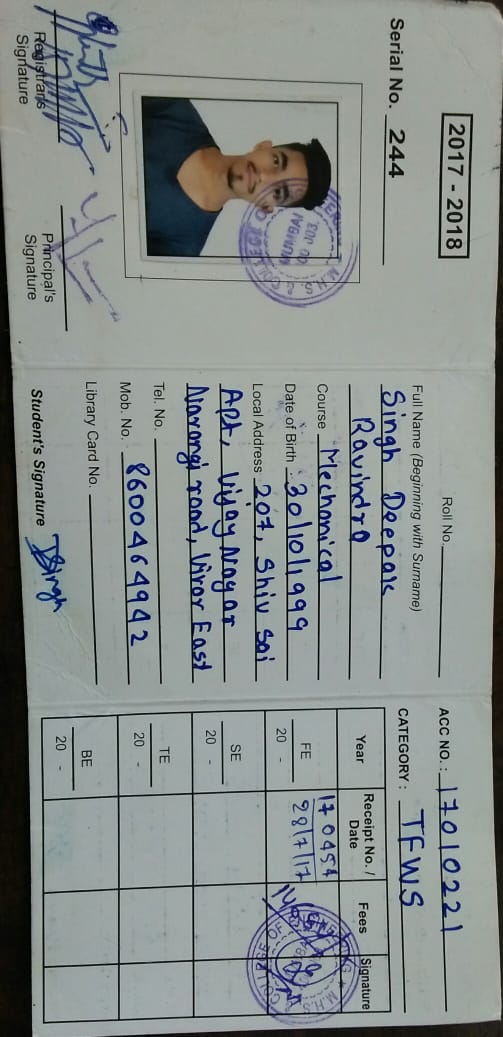 2017 - 2018
Serial No. 244
Registrar's
Signature
Principal's
Signature
Roll No.
Full Name (Beginning with Surname)
Singh Deepak
Ravindra
Course Mechanical
Date of Birth : 30/10/1999
Local Address 207, Shiv Sai
Apt, Vijay Nagar
Narangi road, Virar East
Tel. No.
Mob. No. 8600464942
Library Card No.
Student's Signature DSingh
ACC NO. : 17010221
CATEGORY : TFWS
Year Receipt No. / Date Fees Signature
FE
20 -
170454
28/7/17
SE
20 -
TE
20 -
BE
20 -
COLLEGE OF
M.H.S.